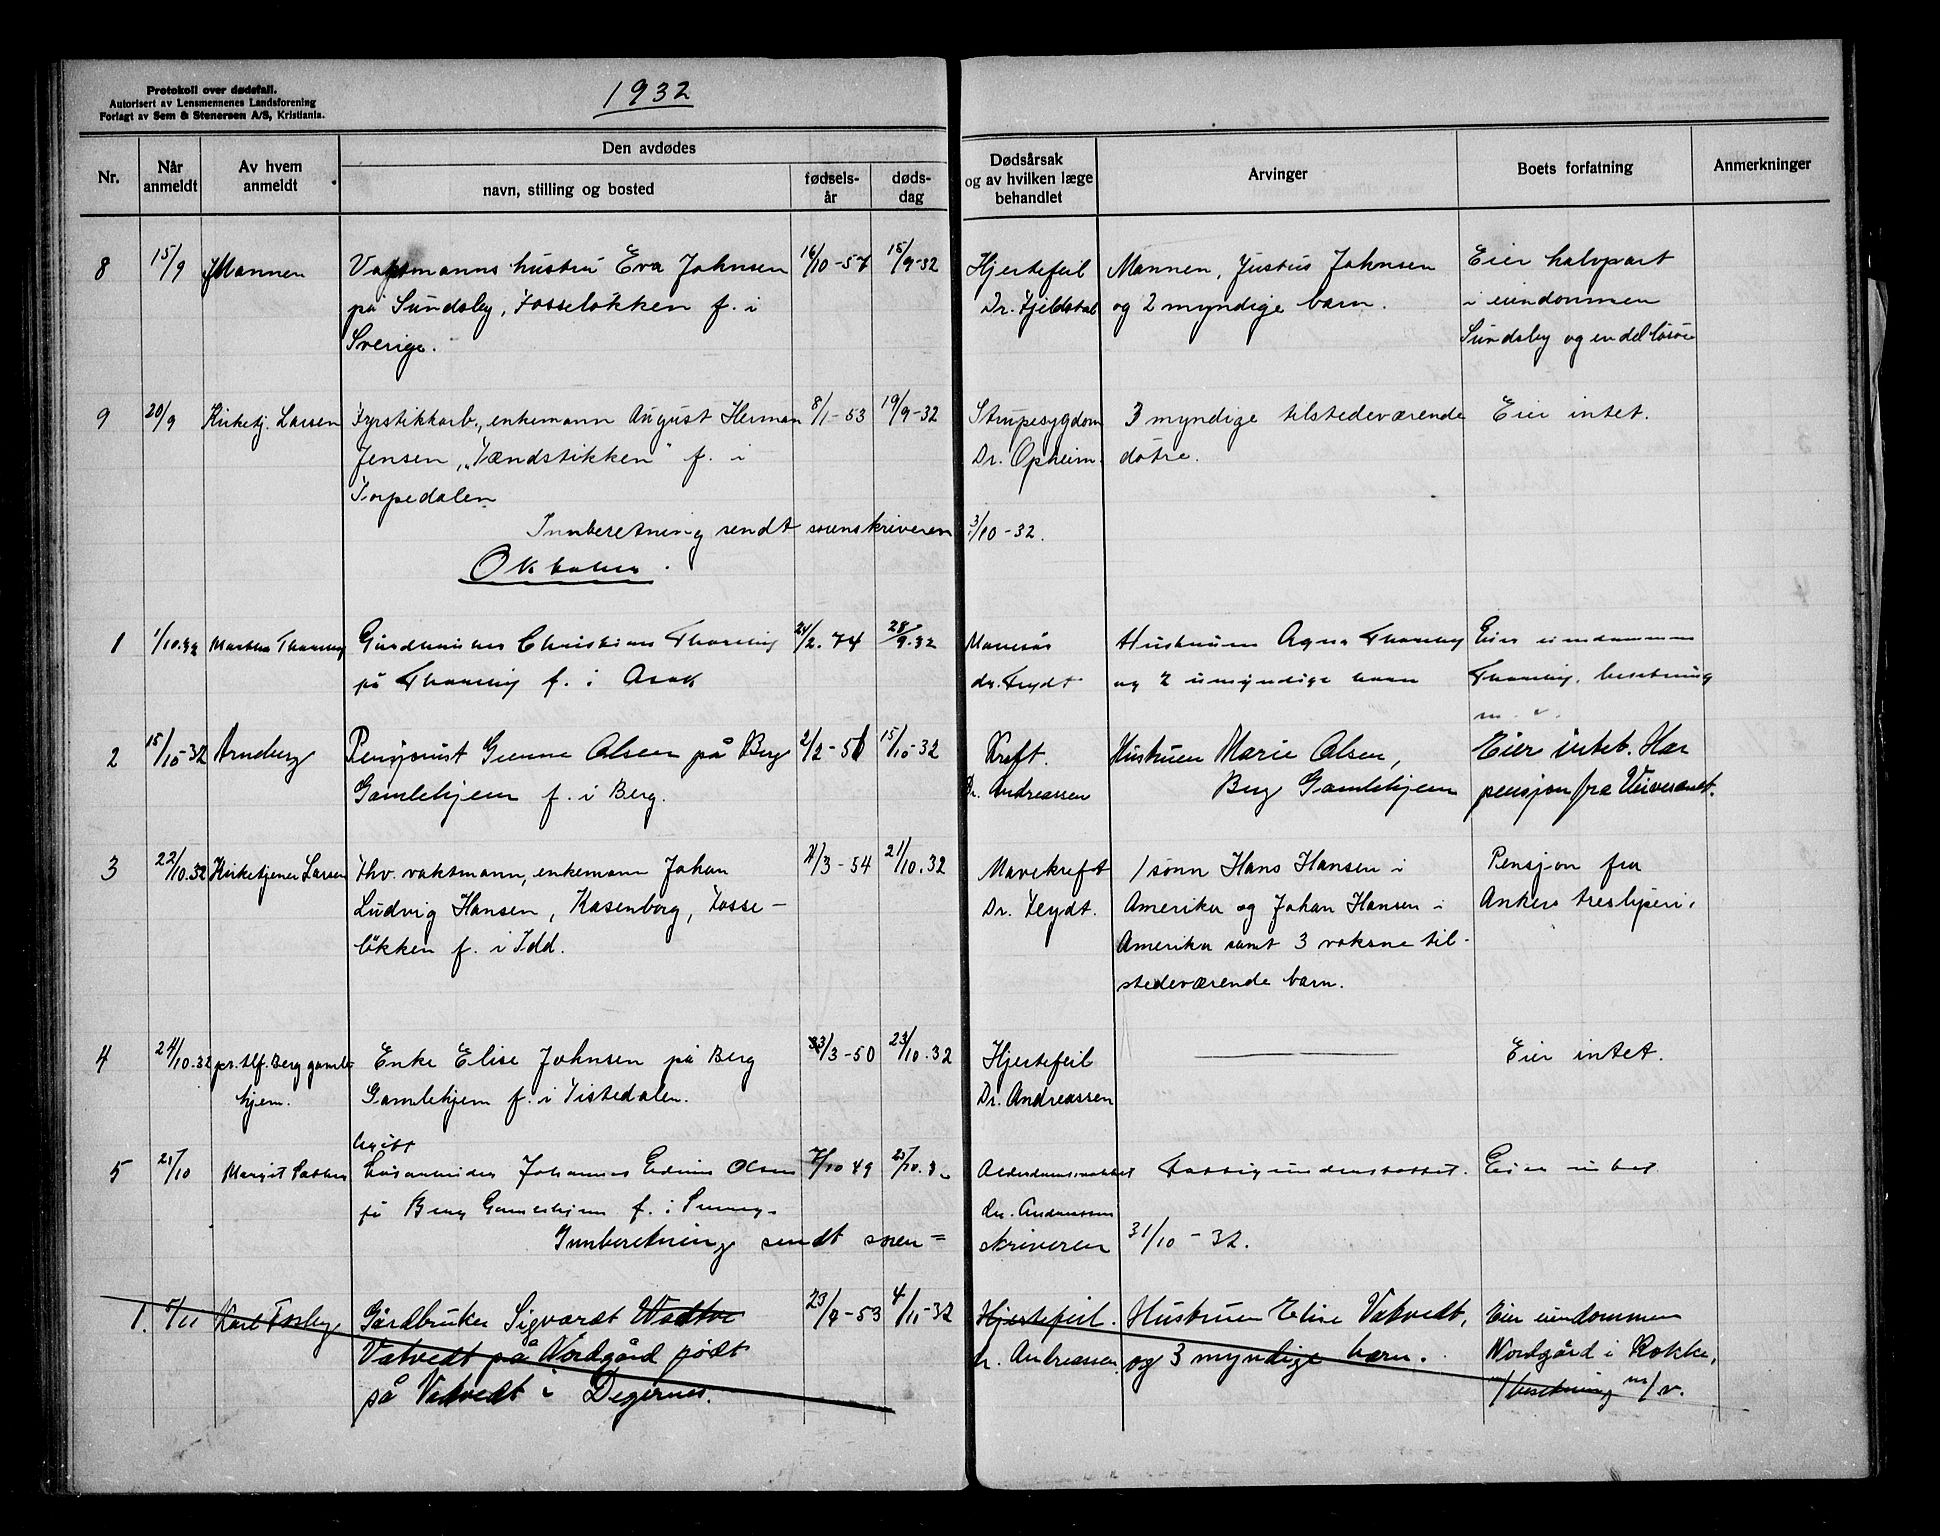 Protokoll over dødsfall.
Autorisert av Lensmennenes Landsforening
Forlagt av Sem & Stenersen A/S, Kristiania.
1932
Nr.
Når anmeldt
Av hvem anmeldt
Den avdødes
navn, stilling og bosted
fødsels-år
døds-dag
Dødsårsak og av hvilken læge behandlet
Arvinger
Boets forfatning
Anmerkninger
8 15/9 Mannen Vaktmanns hustru Eva Johnsen 16/10-57 15/9-32 Hjertefeil Mannen, Justus Johnsen Eier halvpart
på Sundsby, Fosseløkken f. i Dr. Fjeldstad og 2 myndige barn. i eiendommen
Sverige. Sundsby og en del løsøre
9 20/9 Kirketj. Larsen Fyrstikkarb., enkemann August Herman 8/1-53 19/9-32 Strupesygdom 3 myndige tilstedeværende Eier intet.
Jensen, "Tændstikken" f. i Dr. Opheim. døtre.
Torpedalen
Innberetning sendt sorenskriveren 3/10-32.
Oktober.
1 1/10.32 Gårdbruker Christian Thoreby 24/2.74 28/9.32 Mavesår Hustruen Agna Thoreby Eier eiendommen
på Thoreby f. i Asak dr. Feydt og 2 umyndige barn Thoreby, besetning
m. v.
2 15/10-32 Arneberg Pensjonist Olsen på Berg 2/2-51 15/10-32 Kreft. Hustruen Marie Olsen, Eier intet. Har
Gamlehjem f. i Berg. Dr. Andreassen Berg Gamlehjem pensjon fra
3 22/10.32 Kirketjener Larsen Fhv. vaktmann, enkemann Johan 4/3-54 21/10.32 Mavekreft 1 sønn Hans Hansen i Pensjon fra
Ludvig Hansen, Kasenborg, Fosse- Dr. Feydt. Amerika og Johan Hansen i Ankers tresliperi.
løkken f. i Idd. Amerika samt 3 voksne til-
stedeværende barn.
4 24/10.32 pr. tlf. Berg gamle- Enke Elise Johnsen på Berg 23/3-50 23/10.32 Hjertefeil Eier intet.
hjem. Gamlehjem f. i Tistedalen. Dr. Andreassen
5 Margit Løsarbeider Johannes Edvin Olsen 7/10 49 Alderdomssvakhet Fattigunderstøttet. Eier intet
på Berg Gamlehjem f. i Dr. Andreassen
Innberetning sendt soren= skriveren 31/10-32.
1. 5/11 Karl Gårdbruker Sigvardt 23/9-53 4/11-32 Hjertefeil. Hustruen Elise Vatvedt, Eier eiendommen
Vatvedt på Nordgård født Dr. Andreassen og 3 myndige barn. Nordgård i Rokke,
på Vatvedt i Degernes. m/besetning m/v.